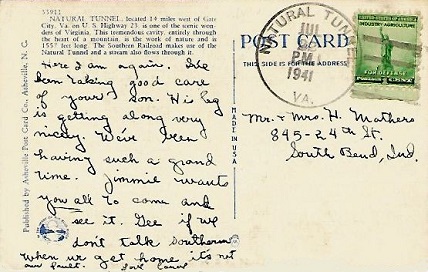 53912
NATURAL TUNNEL, located 14 miles west of Gate
City, Va. on U. S. Highway 23, is one of the scenic won-
ders of Virginia. This tremendous cavity, entirely through
the heart of a mountain, is the work of nature and is
1557 feet long. The Southern Railroad makes use of the
Natural Tunnel and a stream also flows through it.
Here I am again. I've
been taking good care
of yours' son. His leg
is getting along very
nicely. We've been
having such a grand
time. Jimmie wants
you all to come and
see it. Gee if we
don't talk southern
when we get home it's not
our fault. Love Carol
Published by Asheville Post Card Co., Asheville, N. C.
MADE IN U.S.A.
POST CARD
THIS SIDE IS FOR THE ADDRESS
NATURAL TUNNEL
JUL
PM
1941
VA.
UNITED STATES
INDUSTRY AGRICULTURE
FOR DEFENSE
Mr. & Mrs. H. Mathers
845-24th St.
South Bend, Ind.